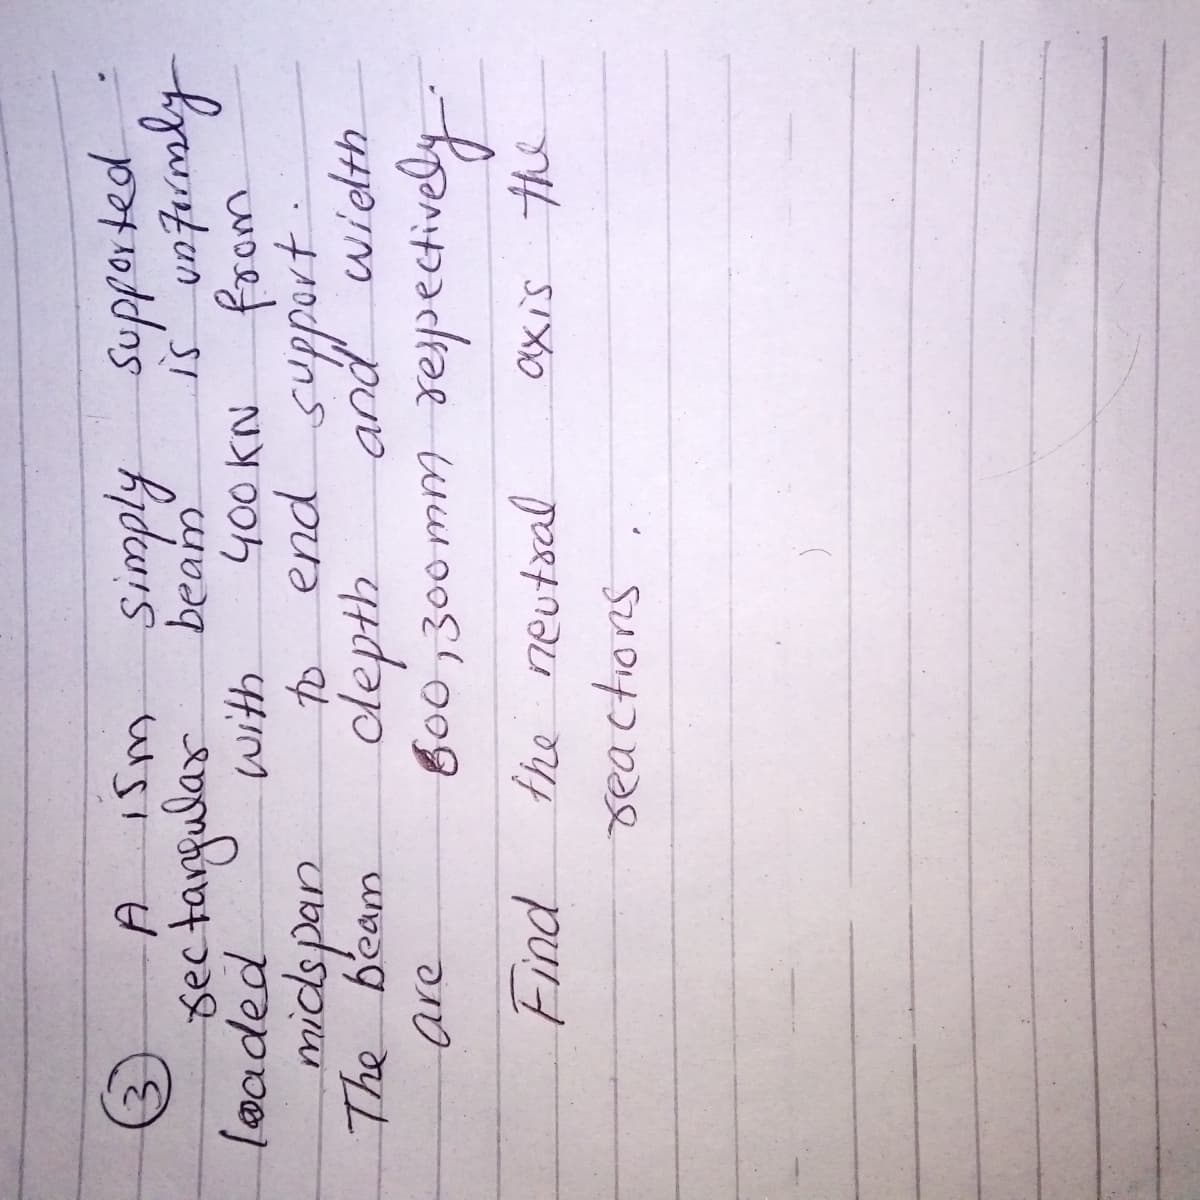 ③ A 15m simply supported.
rectangular beam is unformly
loaded with 400 KN from
midspan to end support.
The beam depth and width
are 800, 300 mm respectively.
Find the neutral axis the
reactions.